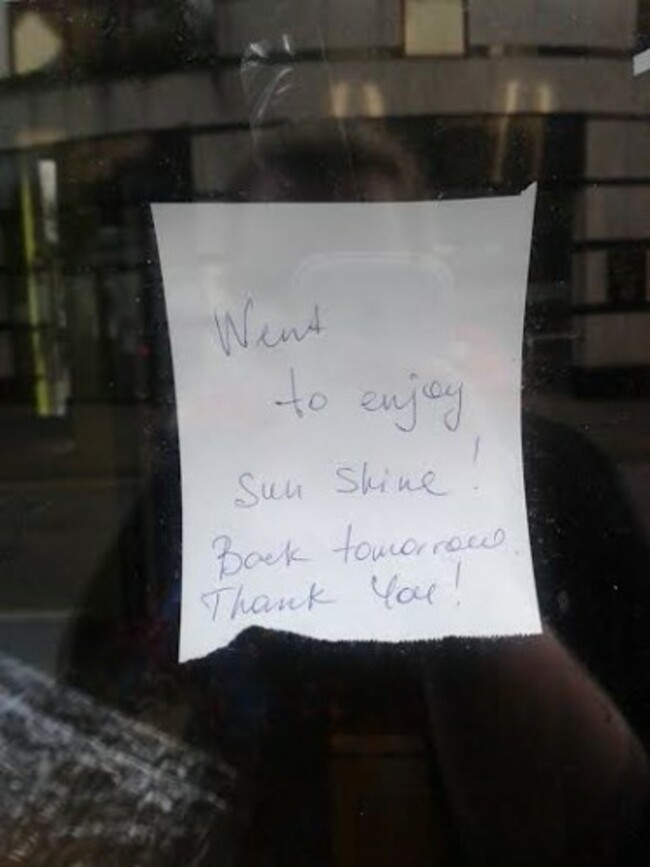 Went
to enjoy
Sun Shine!
Back tomorrow.
Thank You!